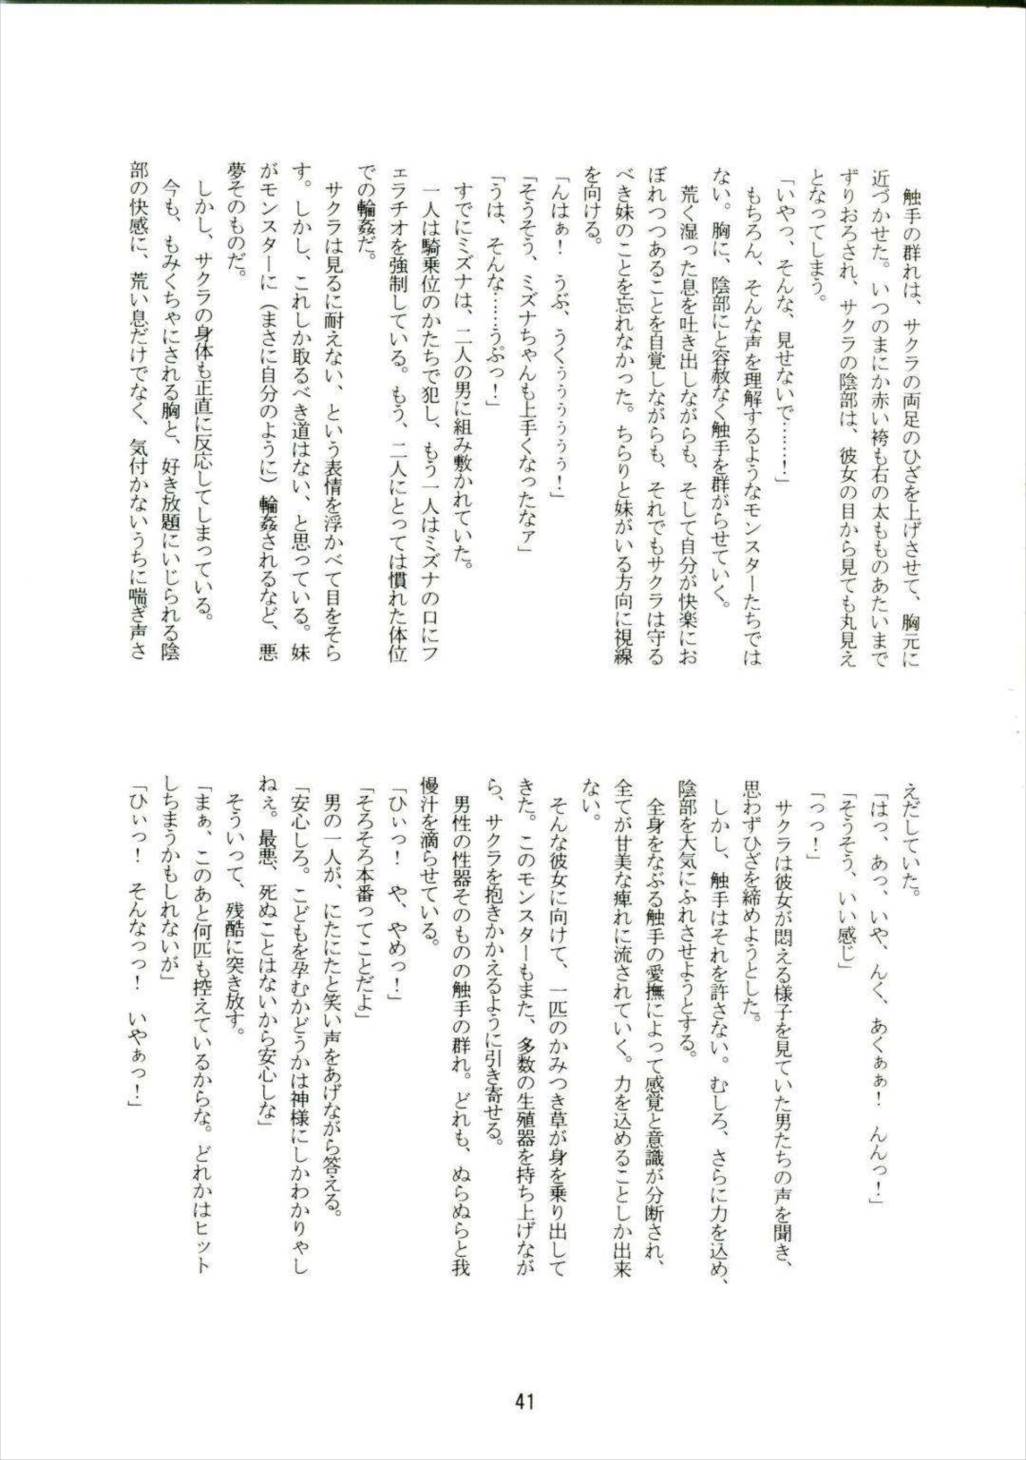 触手の群れは、サクラの両足のひざを上げさせて、胸元に
近づかせた。いつのまにか赤い袴も右の太もものあたいまで
ずりおろされ、サクラの陰部は、彼女の目から見ても丸見え
となってしまう。
「いやっ、そんな、見せないで……！」
もちろん、そんな声を理解するようなモンスターたちでは
ない。胸に、陰部にと容赦なく触手を群がらせていく。
荒く湿った息を吐き出しながらも、そして自分が快楽にお
ぼれつつあることを自覚しながらも、それでもサクラは守る
べき妹のことを忘れなかった。ちらりと妹がいる方向に視線
を向ける。
「んはぁ！　うぶ、うくぅぅぅぅぅ！」
「そうそう、ミズナちゃんも上手くなったなァ」
「うは、そんな……うぷっ！」
すでにミズナは、二人の男に組み敷かれていた。
一人は騎乗位のかたちで犯し、もう一人はミズナの口にフ
ェラチオを強制している。もう、二人にとっては慣れた体位
での輪姦だ。
サクラは見るに耐えない、という表情を浮かべて目をそら
す。しかし、これしか取るべき道はない、と思っている。妹
がモンスターに（まさに自分のように）輪姦されるなど、悪
夢そのものだ。
しかし、サクラの身体も正直に反応してしまっている。
今も、もみくちゃにされる胸と、好き放題にいじられる陰
部の快感に、荒い息だけでなく、気付かないうちに喘ぎ声さ
えだしていた。
「はっ、あっ、いや、んく、あくぁぁ！　んんっ！」
「そうそう、いい感じ」
「っっ！」
サクラは彼女が悶える様子を見ていた男たちの声を聞き、
思わずひざを締めようとした。
しかし、触手はそれを許さない。むしろ、さらに力を込め、
陰部を大気にふれさせようとする。
全身をなぶる触手の愛撫によって感覚と意識が分断され、
全てが甘美な痺れに流されていく。力を込めることしか出来
ない。
そんな彼女に向けて、一匹のかみつき草が身を乗り出して
きた。このモンスターもまた、多数の生殖器を持ち上げなが
ら、サクラを抱きかかえるように引き寄せる。
男性の性器そのものの触手の群れ。どれも、ぬらぬらと我
慢汁を滴らせている。
「ひぃっ！　や、やめっ！」
「そろそろ本番ってことだよ」
男の一人が、にたにたと笑い声をあげながら答える。
「安心しろ。こどもを孕むかどうかは神様にしかわかりやし
ねぇ。最悪、死ぬことはないから安心しな」
そういって、残酷に突き放す。
「まぁ、このあと何匹も控えているからな。どれかはヒット
しちまうかもしれないが」
「ひぃっ！　そんなっっ！　いやぁっ！」
41